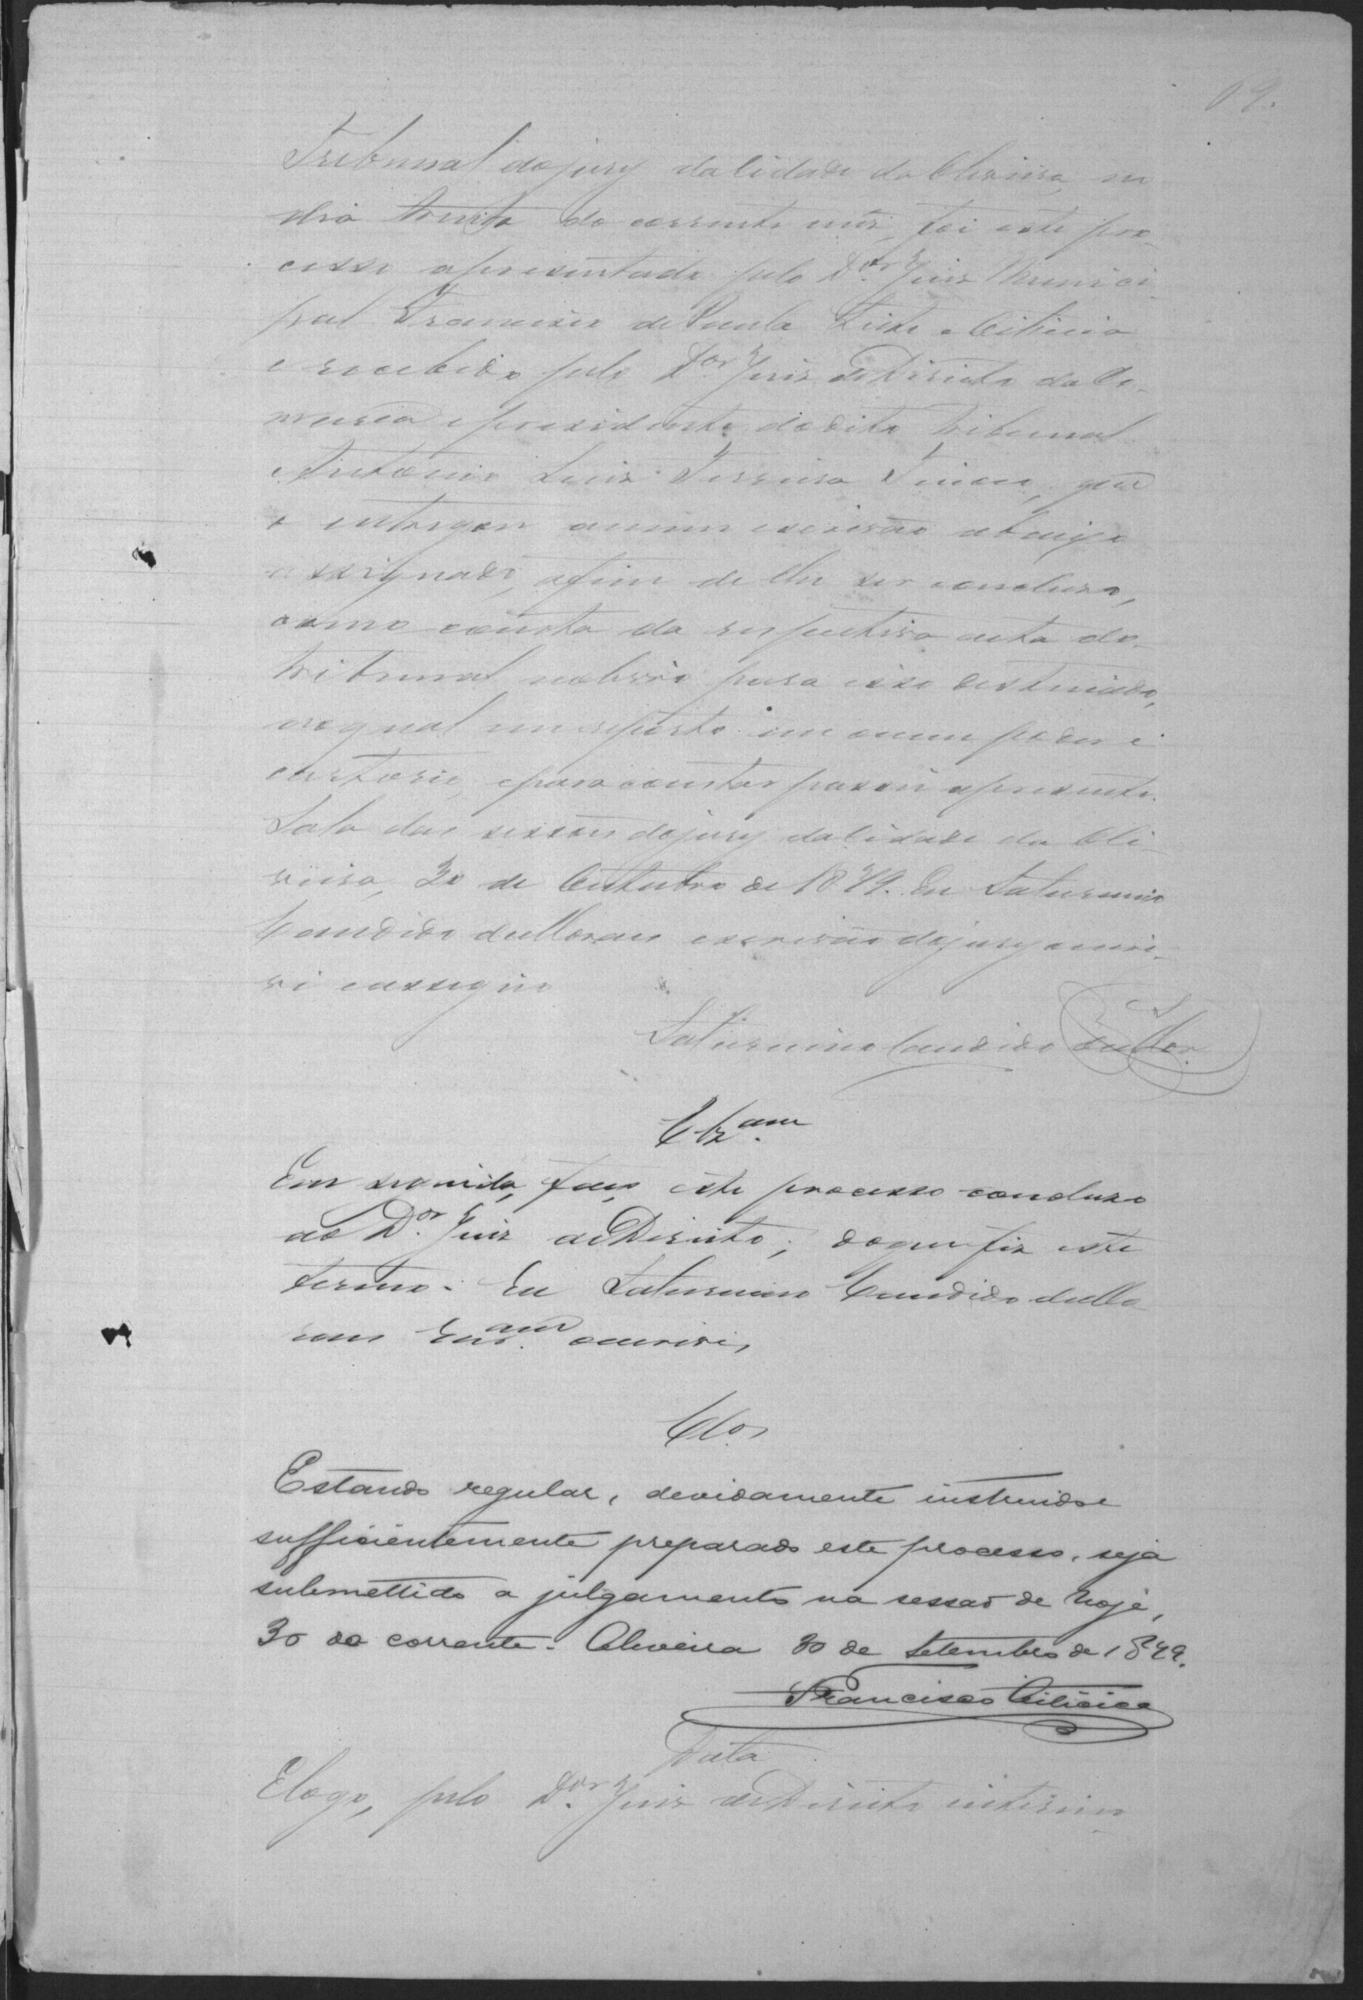 69.
Tribunal do jury da Cidade da Oliveira, no
dia trinta do corrente mês, foi este pro-
cesso apresentado pelo D.or Juiz Munici-
pal Francisco de Paula Leite e Cilicio
e recebido pelo D.or Juiz de Direito da Co-
marca e presidente do dito tribunal
Antonio Luiz Ferreira Tinoco, que
o entregou a mim escrivão abaixo
assignado, afim de lhe ser concluso,
como consta da respectiva acta do
tribunal no livro para isso destinado,
ao qual me reporto em meu poder e
cartorio, e para constar passei a presente.
Sala das sessões do jury da Cidade da Oli-
veira, 30 de Outubro de 1879. Eu Saturnino
Candido de Moraes escrivão do jury o escre-
vi e assigno
Saturnino Candido de Mor.
Clz.am
Em seguida, faço este processo concluso
ao D.or Juiz de Direito; do que fiz este
termo. Eu Saturnino Candido de Mo-
raes Escr.am o escrevi,
Clos
Estando regular, devidamente instruido e
sufficientemente preparado este processo, seja
submettido a julgamento na sessão de hoje,
30 do corrente. Oliveira 30 de Setembro de 1879.
Francisco Cilicio
Data
E logo, pelo D.or Juiz de Direito interino